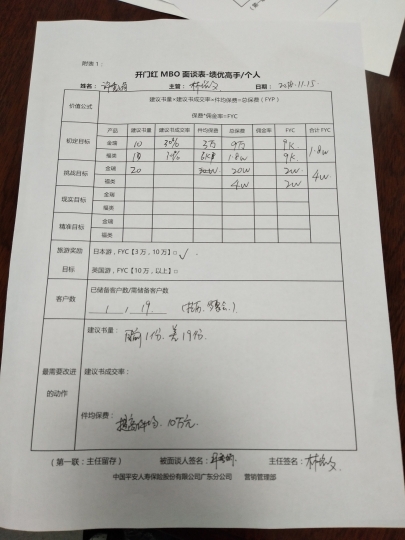 附表1：
开门红MBO面谈表-绩优高手/个人
姓名： 主管： 日期：
价值公式 建议书量*建议书成交率*件均保费=总保费（FYP）
保费*佣金率=FYC
产品 建议书量 建议书成交率 件均保费 总保费 佣金率 FYC 合计FYC
初定目标 金瑞 10 30% 3万 9万 9K 1.8w
福类 1.8w 9K
挑战目标 金瑞 20 20w 2w 4w
福类 4w 2w
现实目标 金瑞
福类
精准目标 金瑞
福类
旅游奖励 日本游，FYC【3万，10万】□ ✓
目标 英国游，FYC【10万，以上】□
客户数 已储备客户数/需储备客户数
1 1 19
最需要改进的动作 建议书量： 1份、差19份
建议书成交率：
件均保费： 10万元
（第一联：主任留存） 被面谈人签名： 主任签名：
中国平安人寿保险股份有限公司广东分公司 营销管理部